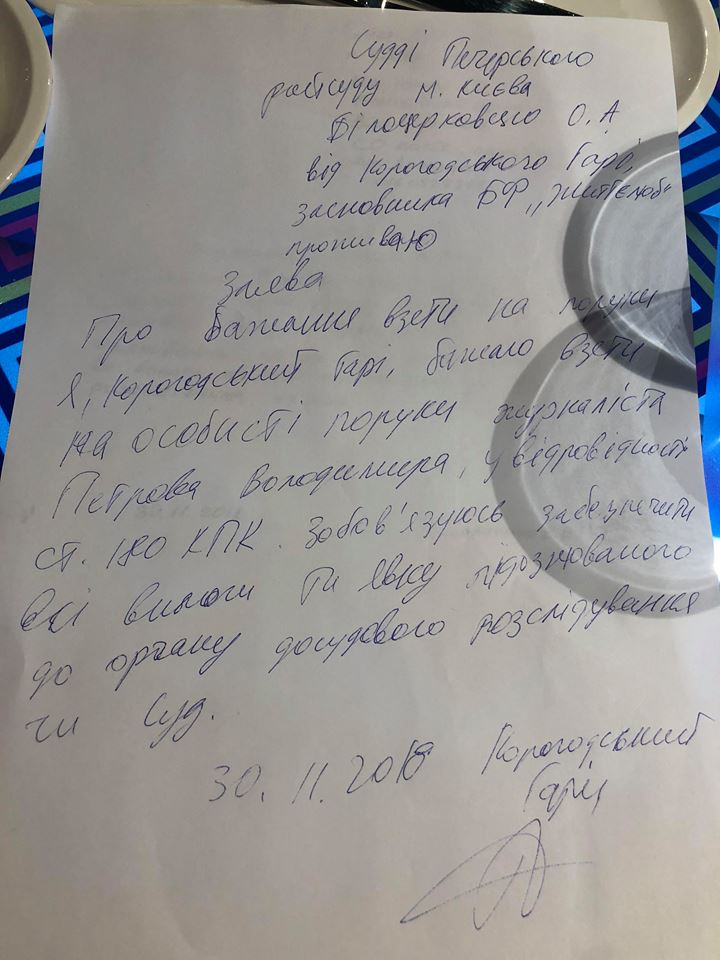 Судді Печерського
райсуду м. Києва
Білоцерковцю О. А
від Корогодського Гарі,
засновника БФ "Життєлюб"
проживаю
Заява
Про бажання взяти на поруки
Я, Корогодський Гарі, бажаю взяти
на особисті поруки журналіста
Петрова Володимира, у відповідності
ст. 180 КПК. Зобов'язуюсь забезпечити
всі вимоги та явку підозрюваного
до органу досудового розслідування
чи суд.
30. 11. 2018 Корогодський
Гарі